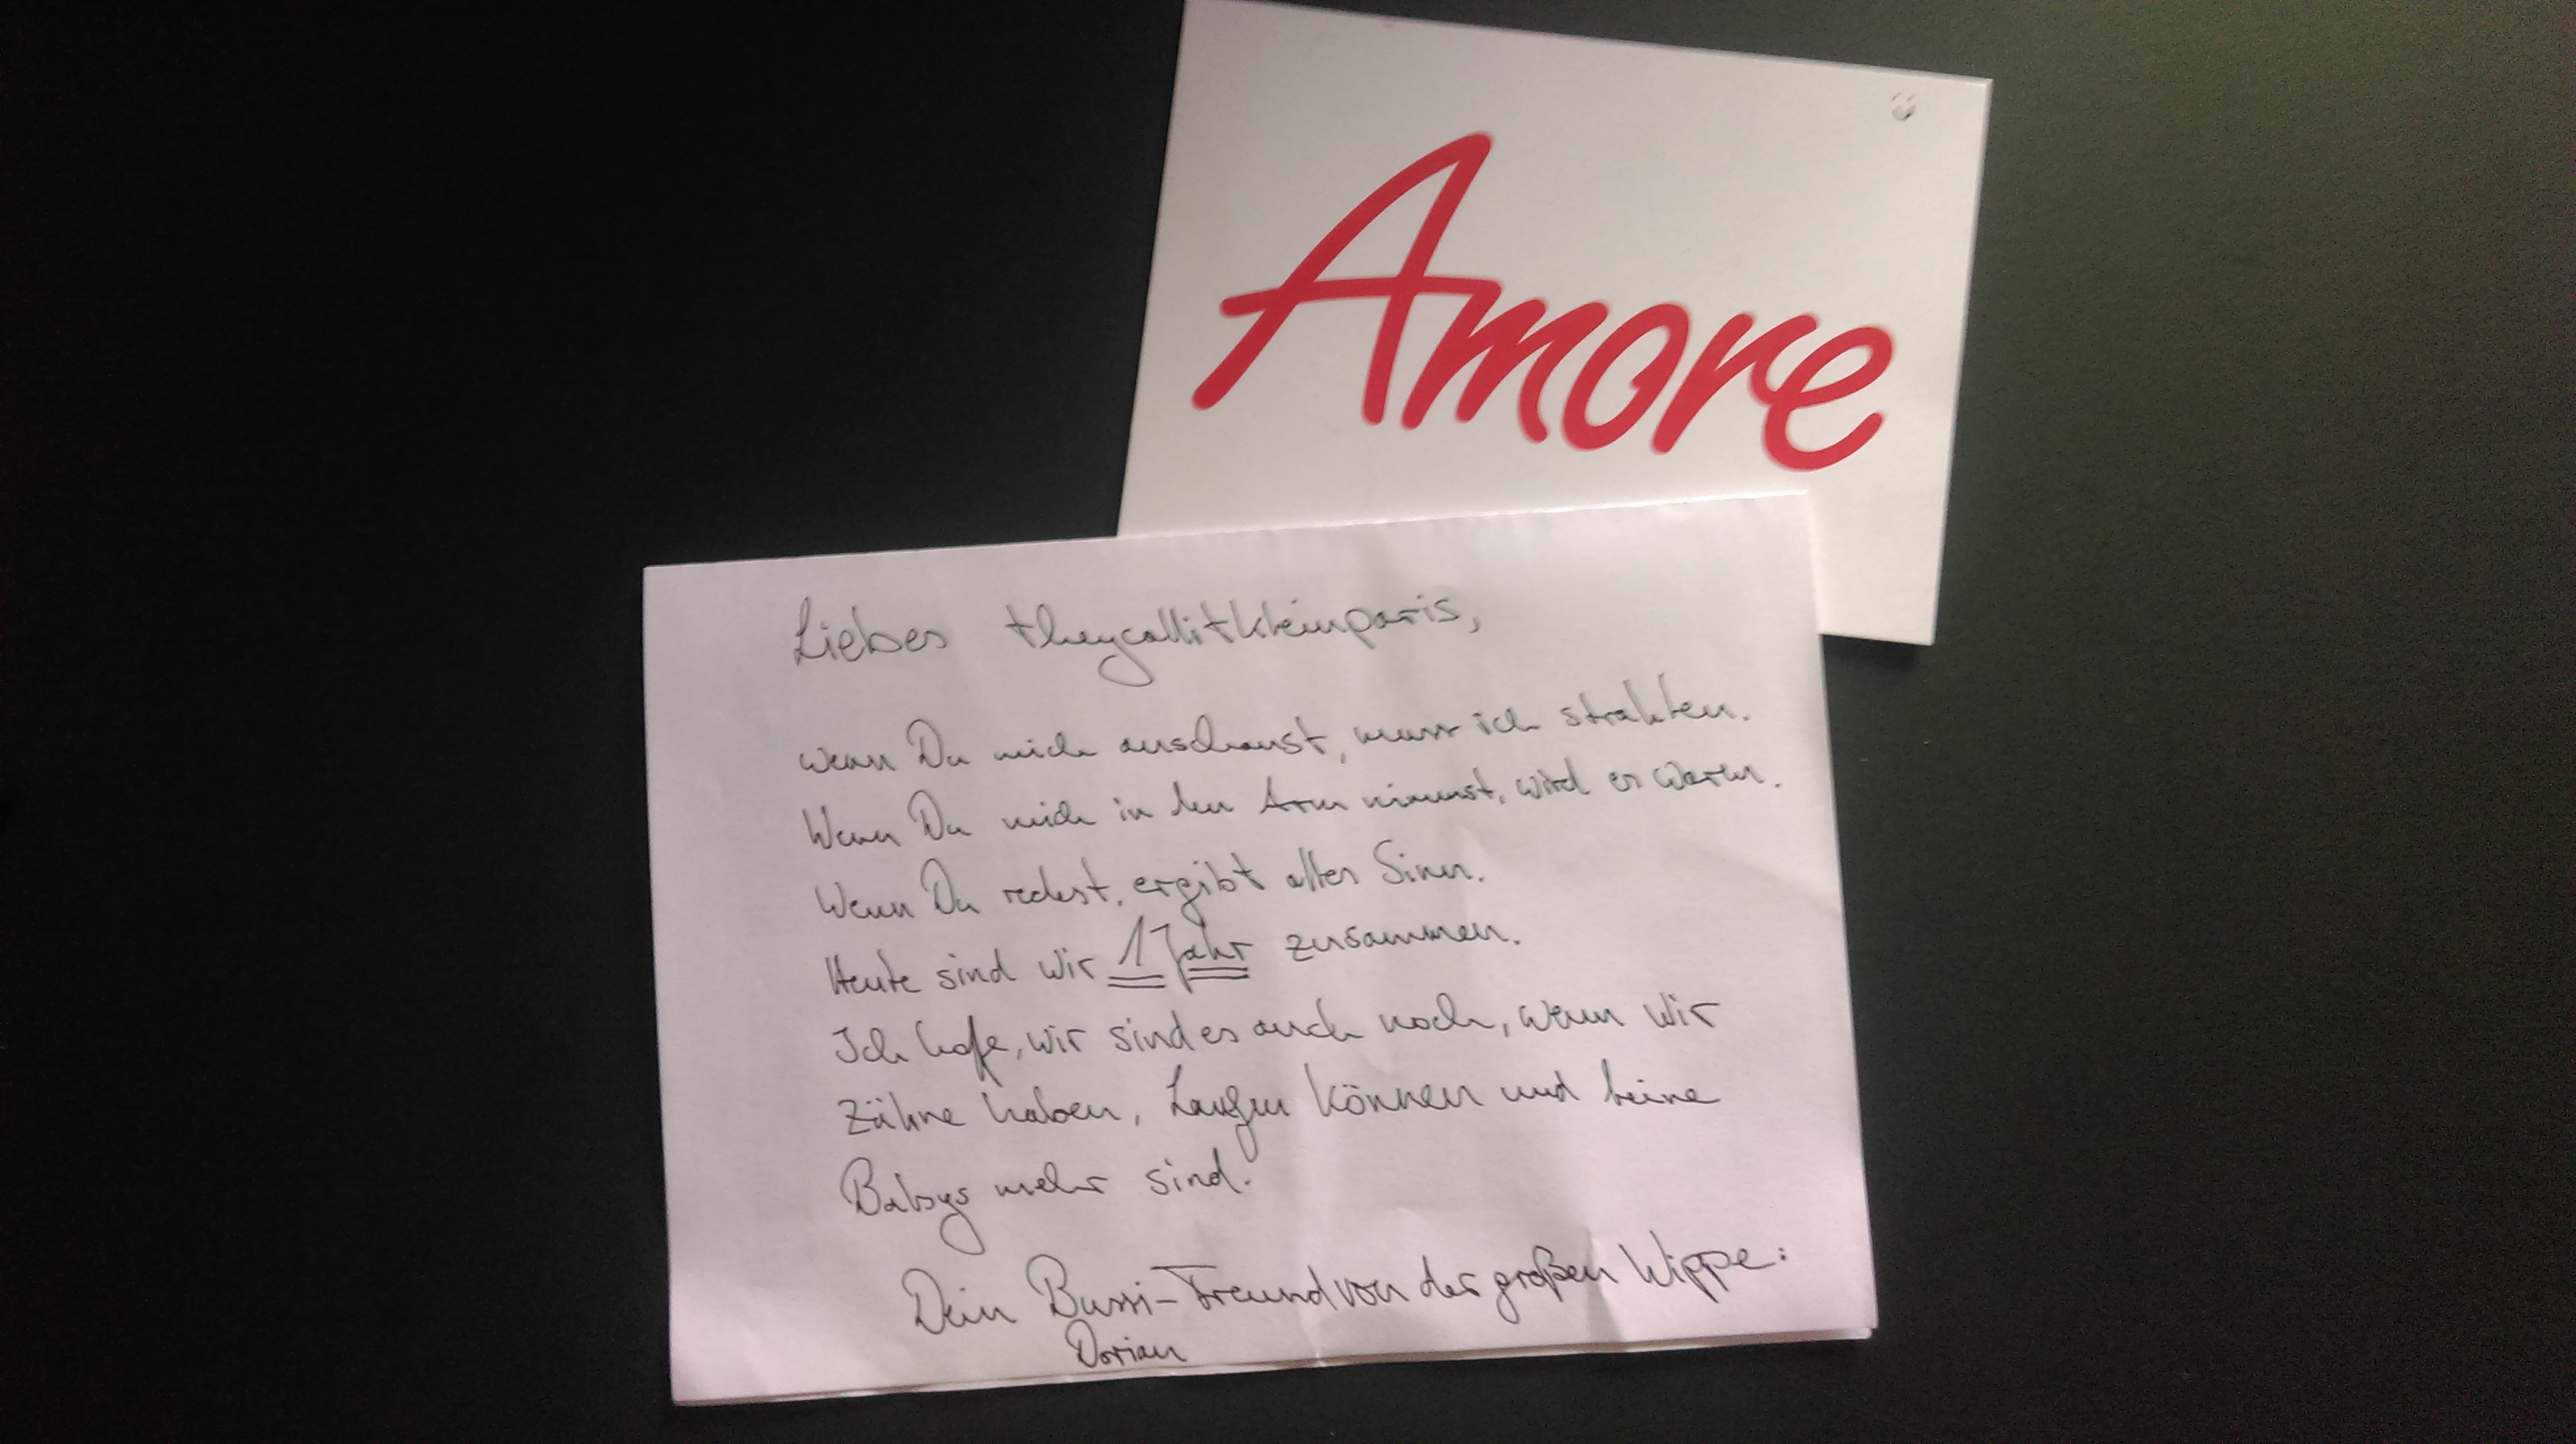 Amore
Liebes theycallitkleinparis,
wenn Du mich anschaust, muss ich strahlen.
Wenn Du mich in den Arm nimmst, wird es warm.
Wenn Du redest, ergibt alles Sinn.
Heute sind wir 1 Jahr zusammen.
Ich hoffe, wir sind es auch noch, wenn wir
Zähne haben, Laufen können und keine
Babys mehr sind.
Dein Bussi-Freund von der großen Wippe:
Dorian